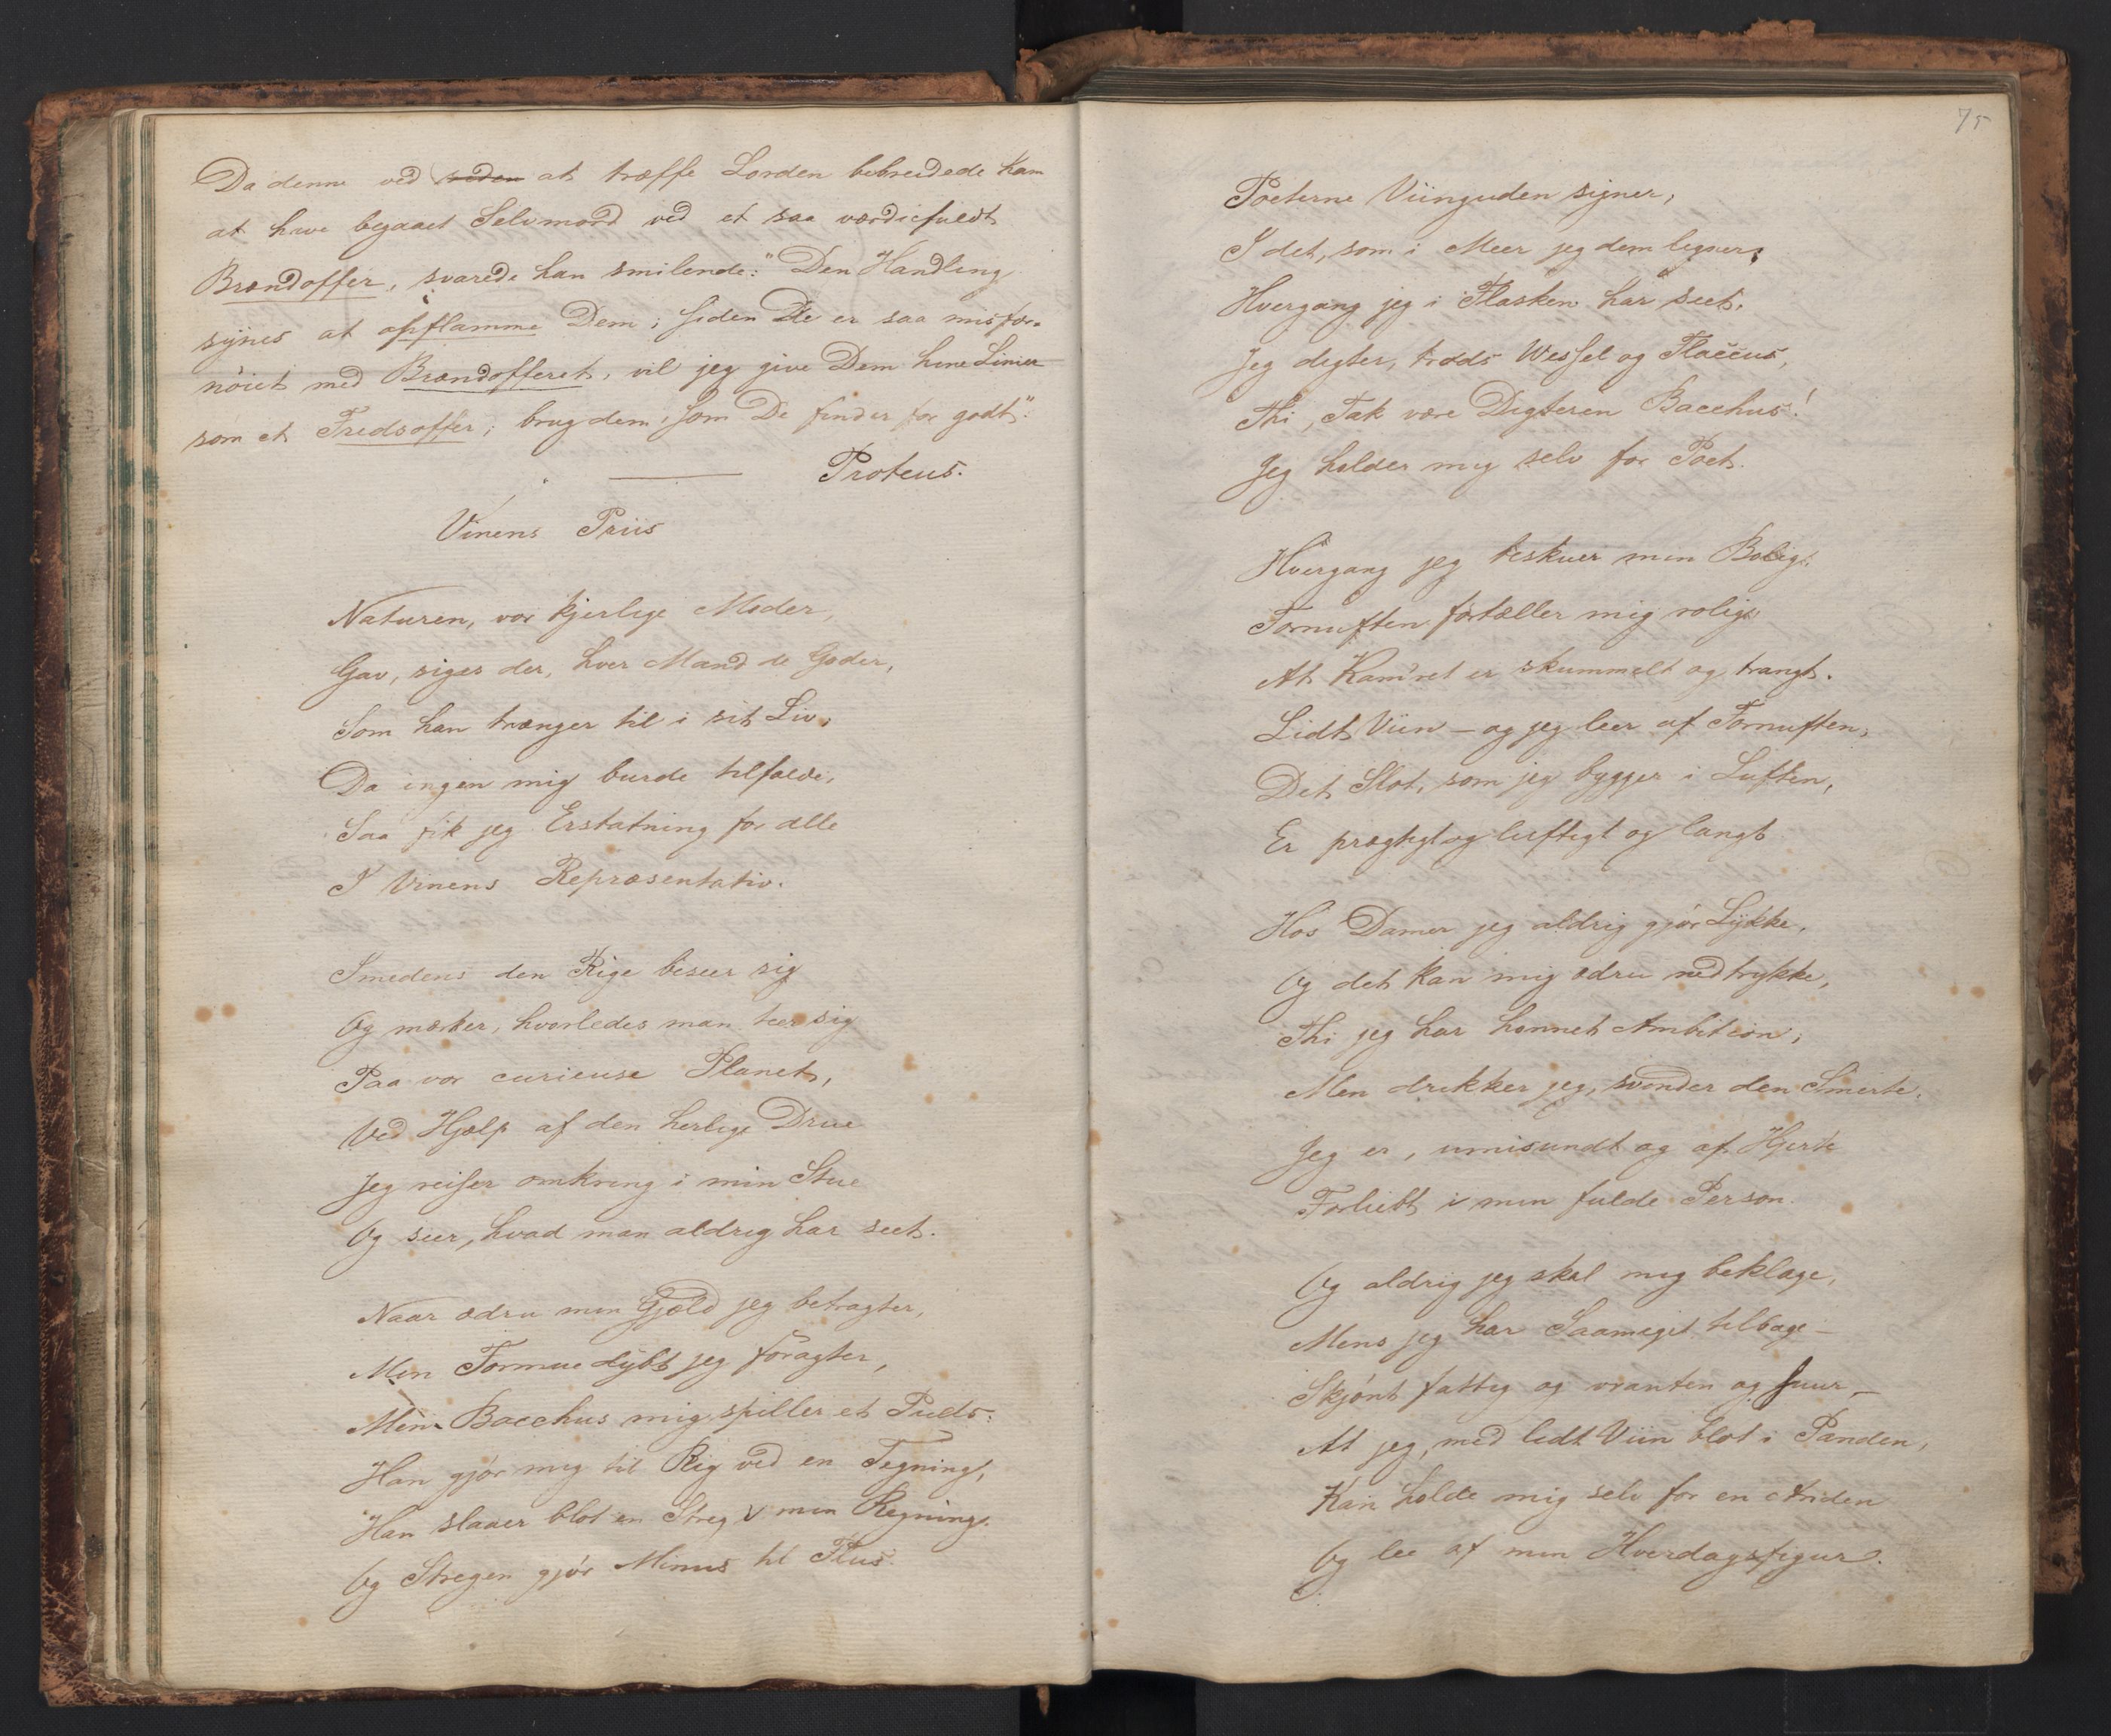 Da denne ved siden at træffe Lorden bebreidede ham
at have begaaet Selvmord ved et saa værdiefuldt
Brændoffer, svarede han smilende: "Den Handling
synes at opflamme Dem; siden De er saa misfor-
nöiet med Brændofferet, vil jeg give Dem hine Linier
som et Fredsoffer; brug dem, som De finder for godt".
Proteus.
Vinens Priis
Naturen, vor kjerlige Moder,
Gav, siges der, hver Mand de Goder,
Som han trænger til i sit Liv,
Da ingen mig burde tilfalde,
Saa fik jeg Erstatning for alle
I Vinens Repræsentativ.
Imedens den Rige beseer sig
Og mærker, hvorledes man teer sig
Paa vor curieuse Planet,
Ved Hjælp af den herlige Drue
Jeg reiser omkring i min Stue
Og seer, hvad man aldrig har seet.
Naar ædru min Gjæld jeg betragter,
Min Formue dybt jeg foragter,
Men Bacchus mig spiller et Puds:
Han gjör mig til Rig ved en Tegning,
Han slaaer blot en Streg i min Regning.
Og Stregen gjör Minus til Plus.
75
Poeterne Viinguden signer,
I det, som i Meer jeg dem ligner,
Hvergang jeg i Flasken har seet.
Jeg digter, trods Wessel og Flaccus,
Thi, Tak være Digteren Bacchus!
Jeg holder mig selv for Poet.
Hvergang jeg beskuer min Bolig,
Fornuften fortæller mig rolig,
At Kamret er skummelt og trangt.
Lidt Viin - og jeg leer af Fornuften,
Det Slot, som jeg bygger i Luften,
Er prægtigt og luftigt og langt
Hos Damer jeg aldrig gjör Lykke,
Og det kan mig ædru nedtrykke,
Thi jeg har honnet Ambition;
Men drikker jeg, svinder den Smerte,
Jeg er, umisundt og af Hjerte
Forliebt i min fulde Person.
Og aldrig jeg skal mig beklage,
Mens jeg har Saameget tilbage -
Skjönt fattig og vranten og suur, -
At jeg, med lidt Viin blot i Panden,
Kan holde mig selv for en Anden
Og lee af min Hverdagsfigur.